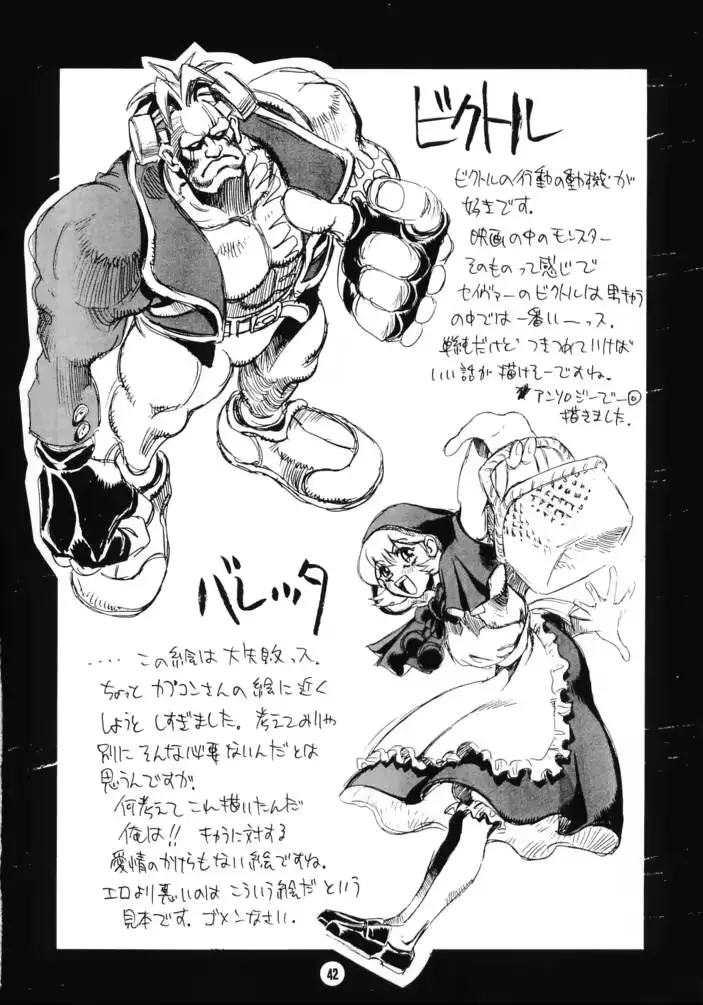 ビクトル
ビクトルの行動の動機が
好きです。
映画の中のモンスター
そのものって感じで
セイヴァーのビクトルは男キャラ
の中では一番いーっス。
単純だけど つきつめていけば
いい話が描けそーですね。
アンソロジーでー
描きました。
バレッタ
.... この絵は大失敗っス.
ちょっと カプコンさんの絵に近く
しようと しすぎました. 考えてみりゃ
別に そんな必要ないんだとは
思うんですが.
何考えて これ描いたんだ
俺は!! キャラに対する
愛情のかけらもない絵ですね.
エロより悪いのは こういう絵だ という
見本です. ゴメンなさい.
42